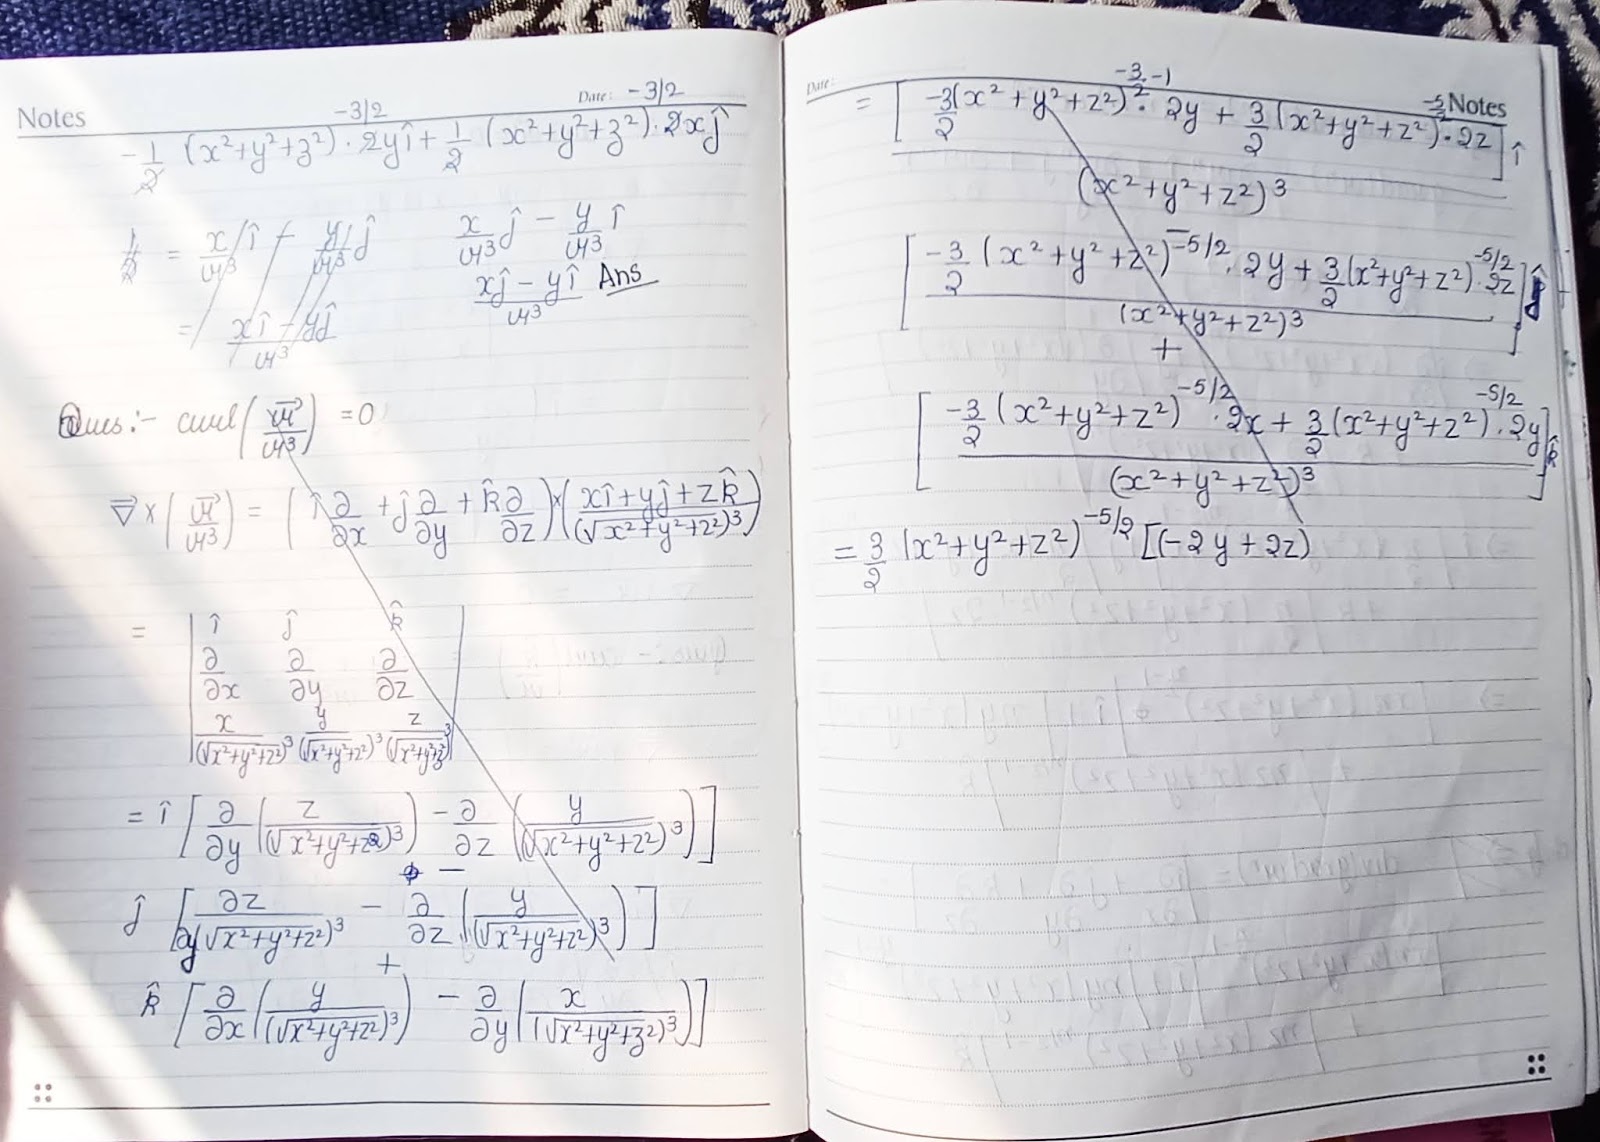 Notes Date: -3/2
-3/2
-1/2 (x²+y²+z²) · 2yî + 1/2 (x²+y²+z²) · 2xĵ
= x/r³ î - y/r³ ĵ x/r³ ĵ - y/r³ î
= xî - yĵ / r³ xĵ - yî / r³ Ans
Ques:- curl (r⃗/r³) = 0
∇⃗ × (r⃗/r³) = (î ∂/∂x + ĵ ∂/∂y + k̂ ∂/∂z) × (xî+yĵ+zk̂ / (√x²+y²+z²)³)
= | î ĵ k̂
∂/∂x ∂/∂y ∂/∂z
x/(√x²+y²+z²)³ y/(√x²+y²+z²)³ z/(√x²+y²+z²)³ |
= î [∂/∂y (z/(√x²+y²+z²)³) - ∂/∂z (y/(√x²+y²+z²)³)]
-
ĵ [∂z/∂y(√x²+y²+z²)³ - ∂/∂z (y/(√x²+y²+z²)³)]
+
k̂ [∂/∂x (y/(√x²+y²+z²)³) - ∂/∂y (x/(√x²+y²+z²)³)]
Date: Notes
= [-3/2 (x²+y²+z²)^(-3/2-1) · 2y + 3/2 (x²+y²+z²)^(-5/2) · 2z] î
(x²+y²+z²)³
[-3/2 (x²+y²+z²)^(-5/2) · 2y + 3/2 (x²+y²+z²)^(-5/2) · 2z] ĵ
(x²+y²+z²)³
+
[-3/2 (x²+y²+z²)^(-5/2) · 2x + 3/2 (x²+y²+z²)^(-5/2) · 2y] k̂
(x²+y²+z²)³
= 3/2 (x²+y²+z²)^(-5/2) [(-2y+2z)